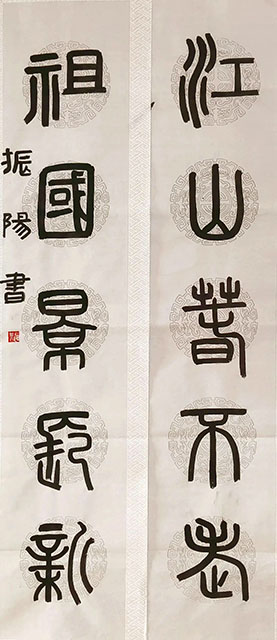 江山春不老
祖國景長新
振陽書